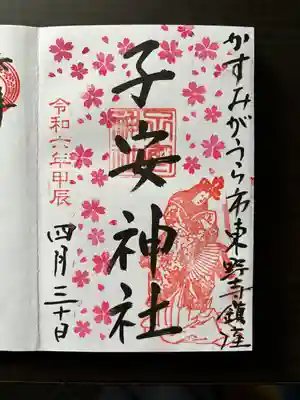 かすみがうら市東野寺鎮座
子安神社
令和六年甲辰
四月三十日